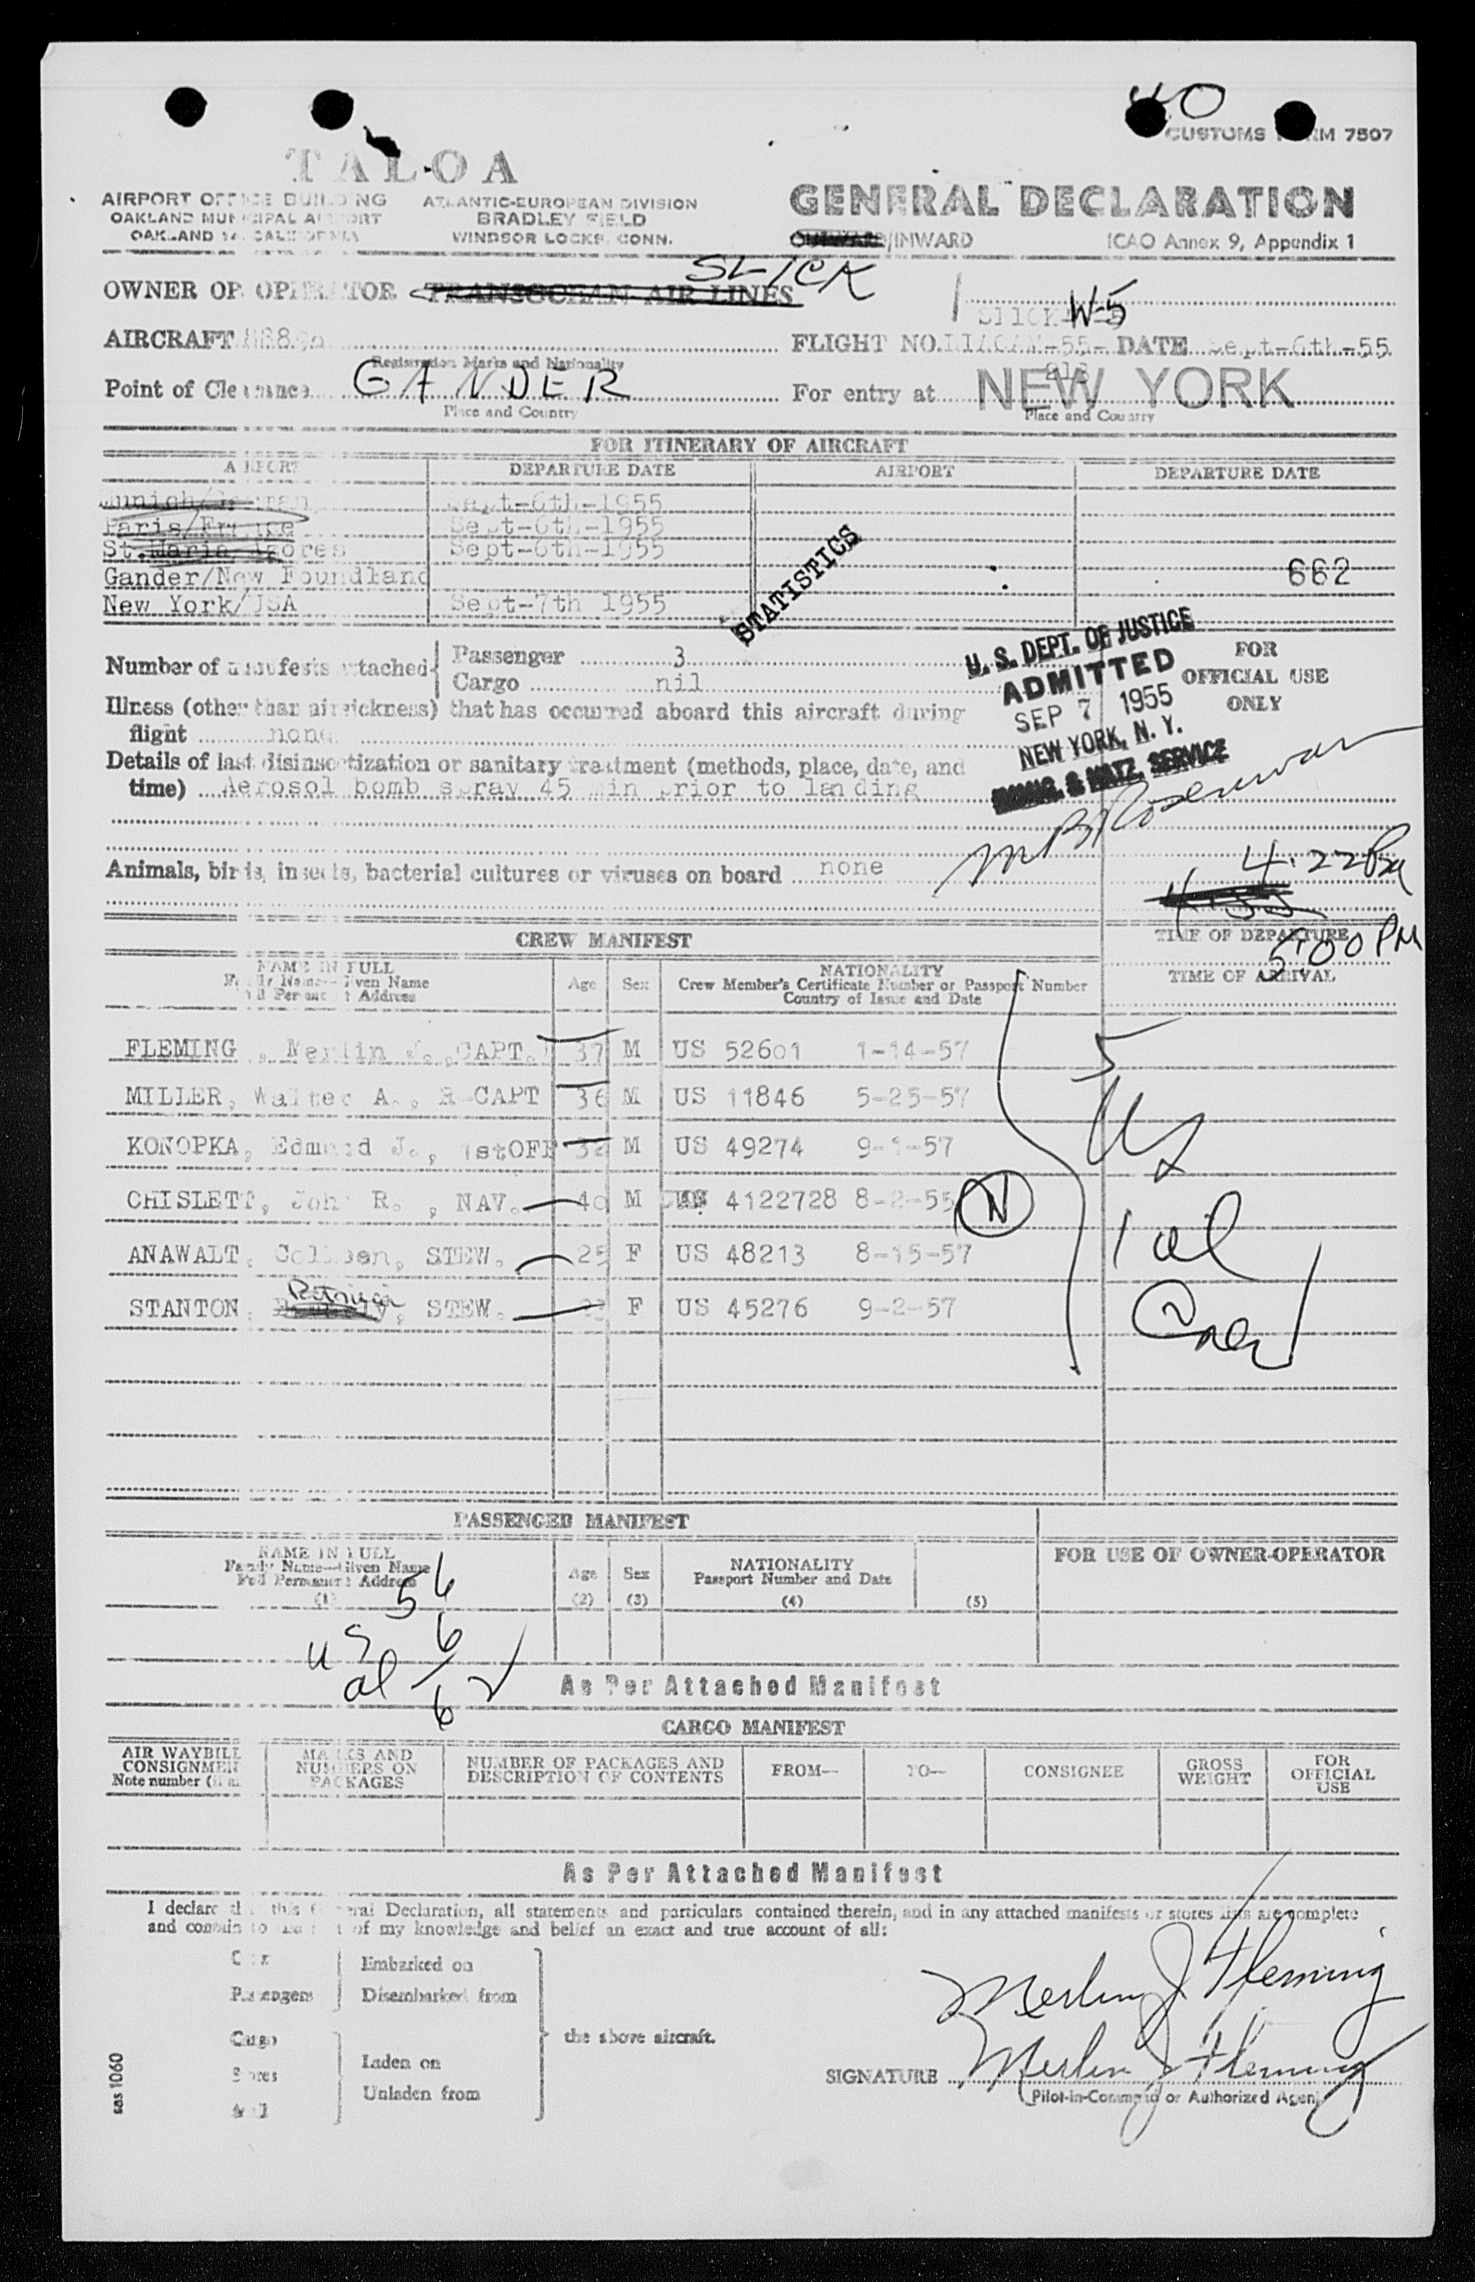 40
CUSTOMS FORM 7507
TALOA
AIRPORT OFFICE BUILDING
OAKLAND MUNICIPAL AIRPORT
OAKLAND 14, CALIFORNIA
ATLANTIC-EUROPEAN DIVISION
BRADLEY FIELD
WINDSOR LOCKS, CONN.
GENERAL DECLARATION
OUTWARD/INWARD
ICAO Annex 9, Appendix 1
OWNER OR OPERATOR TRANSOCEAN AIR LINES SLICK
AIRCRAFT
Registration Marks and Nationality
Slick W-5
FLIGHT NO. DATE Sept-6th-55
Point of Clearance GANDER
Place and Country
For entry at NEW YORK
Place and Country
FOR ITINERARY OF AIRCRAFT
AIRPORT DEPARTURE DATE AIRPORT DEPARTURE DATE
Munich/German Sept-6th-1955
Paris/France Sept-6th-1955
St.Maria Azores Sept-6th-1955
Gander/New Foundland 662
New York/USA Sept-7th 1955
STATISTICS
Number of manifests attached Passenger 3
Cargo nil
Illness (other than airsickness) that has occurred aboard this aircraft during
flight none
Details of last disinsectization or sanitary treatment (methods, place, date, and
time) Aerosol bomb spray 45 min prior to landing
Animals, birds, insects, bacterial cultures or viruses on board none
U. S. DEPT. OF JUSTICE
ADMITTED
SEP 7 1955
NEW YORK, N. Y.
IMMIG. & NATZ. SERVICE
FOR
OFFICIAL USE
ONLY
4:22 PM
TIME OF DEPARTURE
5:00 PM
TIME OF ARRIVAL
CREW MANIFEST
NAME IN FULL
Family Name—Given Name
Full Permanent Address
Age
Sex
NATIONALITY
Crew Member's Certificate Number or Passport Number
Country of Issue and Date
FLEMING, Merlin J., CAPT. 37 M US 52601 1-14-57
MILLER, Walter A., R-CAPT 36 M US 11846 5-25-57
KONOPKA, Edmund J., 1stOFF 32 M US 49274 9-1-57
CHISLETT, John R., NAV. 40 M 4122728 8-2-55 N
ANAWALT, Colleen, STEW. 25 F US 48213 8-15-57
STANTON, Patricia, STEW. F US 45276 9-2-57
5
US
1 al
PASSENGER MANIFEST
NAME IN FULL
Family Name—Given Name
Full Permanent Address
(1)
Age
(2)
Sex
(3)
NATIONALITY
Passport Number and Date
(4)
(5)
FOR USE OF OWNER-OPERATOR
56
us 6
al 6 2
As Per Attached Manifest
CARGO MANIFEST
AIR WAYBILL
CONSIGNMENT
Note number
MARKS AND
NUMBERS ON
PACKAGES
NUMBER OF PACKAGES AND
DESCRIPTION OF CONTENTS
FROM—
TO—
CONSIGNEE
GROSS
WEIGHT
FOR
OFFICIAL
USE
As Per Attached Manifest
I declare that this General Declaration, all statements and particulars contained therein, and in any attached manifests or stores lists are complete
and contain to the best of my knowledge and belief an exact and true account of all:
Crew
Passengers
Embarked on
Disembarked from
Cargo
Stores
Mail
Laden on
Unladen from
the above aircraft.
Merlin J Fleming
SIGNATURE Merlin J Fleming
(Pilot-in-Command or Authorized Agent)
sas 1060